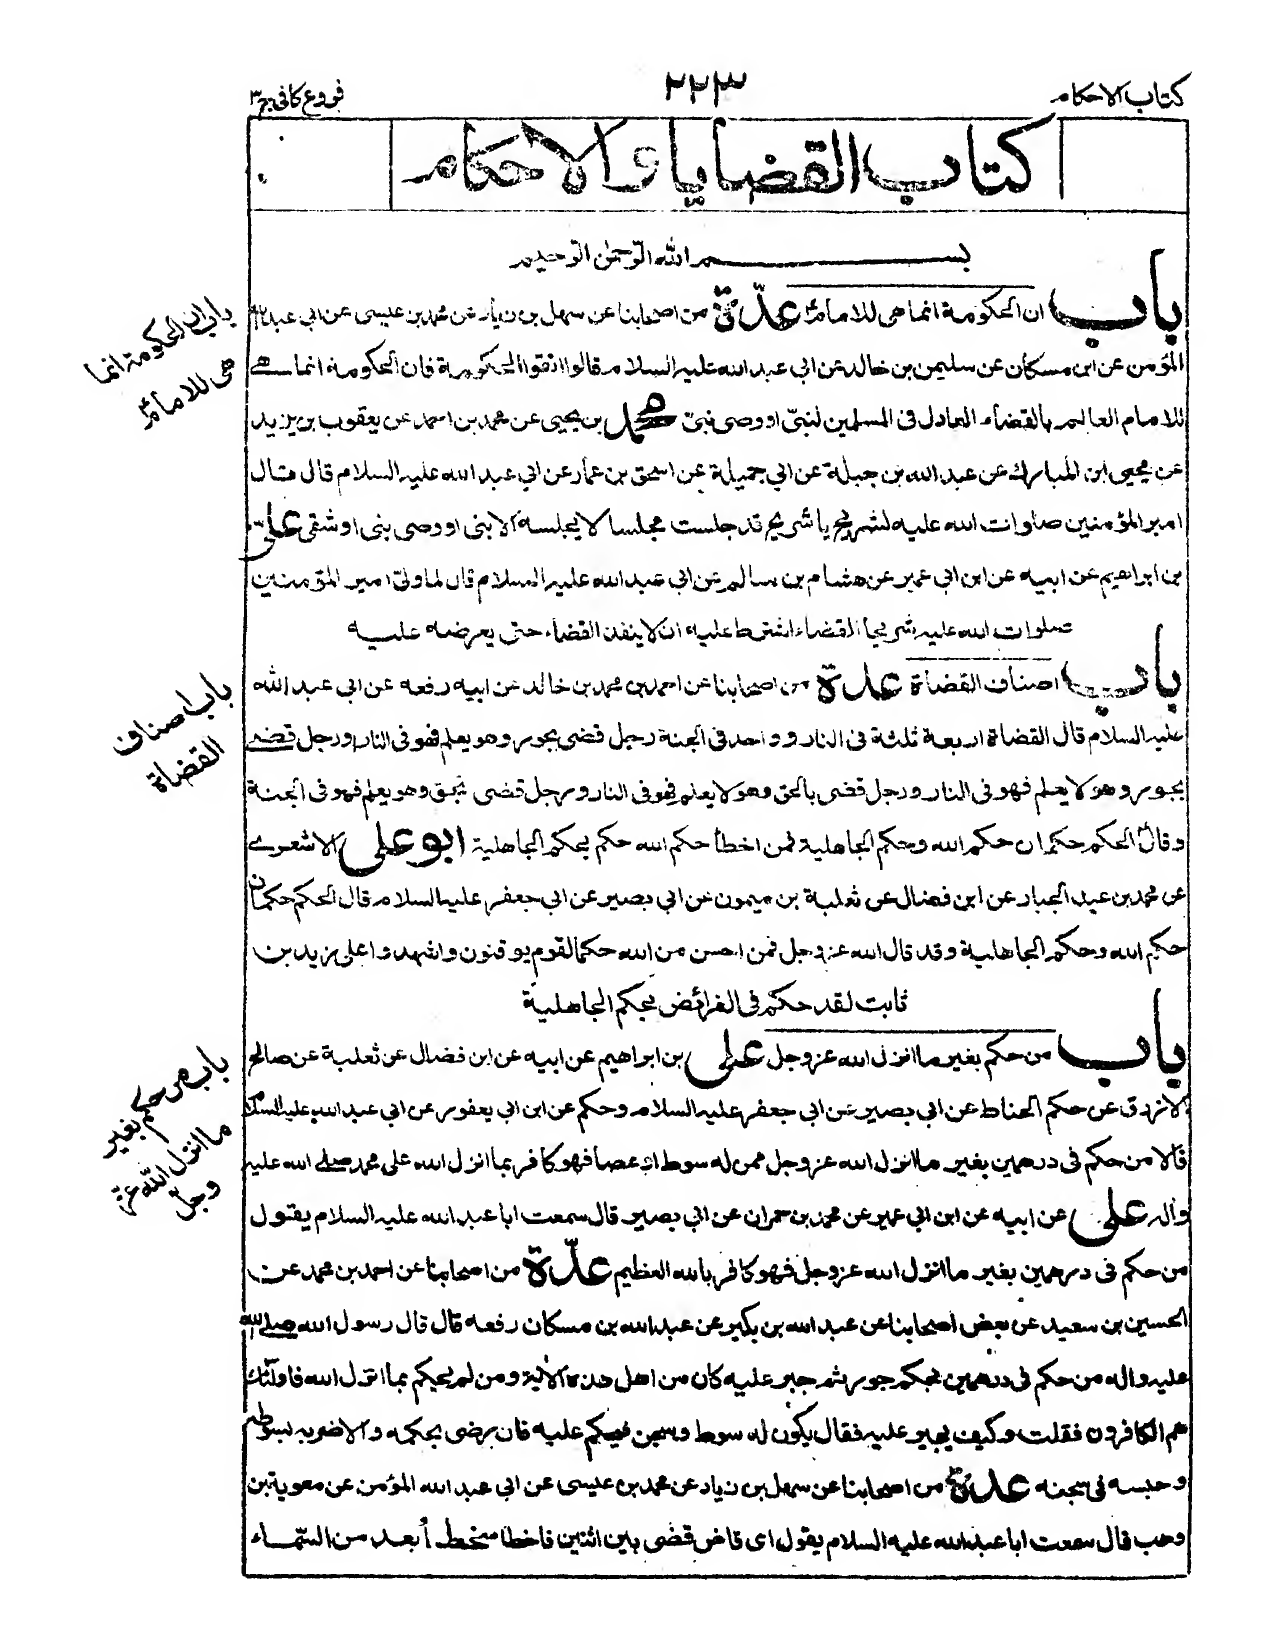 كتاب الاحكام
٢٢٣
فروع كافى ج٣
كتاب القضايا و الاحكام
بسم الله الرحمن الرحيم
باب ان الحكومة انما هى للامام عدة من اصحابنا عن سهل بن زياد عن محمد بن عيسى عن ابى عبد الله
المؤمن عن ابن مسكان عن سليمن بن خالد عن ابى عبد الله عليه السلام قال اتقوا الحكومة فان الحكومة انما هى
للامام العالم بالقضاء العادل فى المسلمين لنبىّ او وصى نبىّ محمد بن يحيى عن محمد بن احمد عن يعقوب بن يزيد
عن يحيى ابن المبارك عن عبد الله بن جبلة عن ابى جميلة عن اسحق بن عمار عن ابى عبد الله عليه السلام قال قال
امير المؤمنين صلوات الله عليه لشريح يا شريح قد جلست مجلسا لا يجلسه الا نبى او وصى نبى او شقى على
بن ابراهيم عن ابيه عن ابن ابى عمير عن هشام بن سالم عن ابى عبد الله عليه السلام قال لما ولّى امير المؤمنين
صلوات الله عليه شريحا القضاء اشترط عليه ان لا ينفذ القضاء حتى يعرضه عليه
باب اصناف القضاة عدة من اصحابنا عن احمد بن محمد بن خالد عن ابيه رفعه عن ابى عبد الله
عليه السلام قال القضاة اربعة ثلثة فى النار و واحد فى الجنة رجل قضى بجور وهو يعلم فهو فى النار ورجل قضى
بجور وهو لا يعلم فهو فى النار ورجل قضى بالحق وهو لا يعلم فهو فى النار ورجل قضى بحق وهو يعلم فهو فى الجنة
وقال الحكم حكمان حكم الله وحكم الجاهلية فمن اخطأ حكم الله حكم بحكم الجاهلية ابو على الاشعرى
عن محمد بن عبد الجبار عن ابن فضال عن ثعلبة بن ميمون عن ابى بصير عن ابى جعفر عليه السلام قال الحكم حكمان
حكم الله وحكم الجاهلية وقد قال الله عز وجل فمن احسن من الله حكما لقوم يوقنون واشهدوا على زيد بن
ثابت لقد حكم فى الفرائض بحكم الجاهلية
باب من حكم بغير ما انزل الله عز وجل على بن ابراهيم عن ابيه عن ابن فضال عن ثعلبة عن صالح
الازرق عن حكم الحناط عن ابى بصير عن ابى جعفر عليه السلام وحكم عن ابن ابى يعفور عن ابى عبد الله عليه السلام
قالا من حكم فى درهمين بغير ما انزل الله عز وجل ممن له سوط او عصا فهو كافر بما انزل الله على محمد صلى الله عليه
واله على عن ابيه عن ابن ابى عمير عن محمد بن حمران عن ابى بصير قال سمعت ابا عبد الله عليه السلام يقول
من حكم فى درهمين بغير ما انزل الله عز وجل فهو كافر بالله العظيم عدّة من اصحابنا عن احمد بن محمد عن
الحسين بن سعيد عن بعض اصحابنا عن عبد الله بن بكير عن عبد الله بن مسكان رفعه قال قال رسول الله صلى الله
عليه واله من حكم فى درهمين بحكم جور ثم جبر عليه كان من اهل هذه الاية ومن لم يحكم بما انزل الله فاولئك
هم الكافرون فقلت وكيف يجبر عليه فقال يكون له سوط وسجن فيحكم عليه فان رضى بحكمه والا ضربه بسوطه
وحبسه فى سجنه عدة من اصحابنا عن سهل بن زياد عن محمد بن عيسى عن ابى عبد الله المؤمن عن معوية بن
وهب قال سمعت ابا عبد الله عليه السلام يقول اى قاض قضى بين اثنين فاخطا سخط أبعد من السّماء
باب ان الحكومة انما
هى للامام
باب اصناف
القضاة
باب من حكم بغير
ما انزل الله عز
وجل